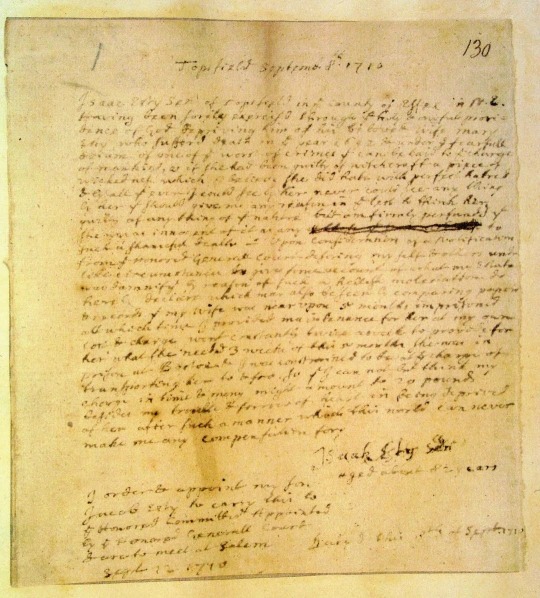 130
Topsfield Septemr 8th 1710
Isaac Esty Senr of Topsfield in ye county of Essex in N.E.
having been sorely exercised through ye holy & awful provi
dence of God depriving him of his beloved wife Mary
Esty who suffered death in ye year 1692 & under ye fearfull
odium of one of ye worst of crimes yt can be laid to ye charge
of mankind, as if she had been guilty of witchcraft a piece of
wickedness which I beleeve she did hate with perfect hatred
& by all yt ever I could see by her never could see any thing
by her yt should give me any reason in ye lest to think her
guilty of any thing of yt nature but am firmly perswaded yt
she was as innocent of it as any to
such a shameful death - Upon consideration of a notification
from ye Honored Generall Court desiring my self & others under
like circumstances to give some account of what my Estate
was damnify'd by reason of such a hellish molestation do
hereby declare which may also be seen by comparing papers
& records yt my wife was near upon 5 months imprisoned
all which time I provided maintenance for her at my own
cost & charge, went constantly twice aweek to provide for
her what she needed 3 weeks of this 5 months she was in
prison at Boston & I was constrained to be at ye charge of
transporting her to & fro. So yt I can not but think my
charge in time & mony might amount to 20 pounds
besides my trouble & sorrow of heart in being deprived
of her after such a manner which this world can never
make me any compensation for
Isaac Esty Senr
aged about 82 years
I order & appoint my son
Jacob Esty to carry this to
ye Honored Committee Appointed
by ye Honored Generall Court
& are to meet at Salem
Sept 12 1710
Dated this 8th of Septr 1710